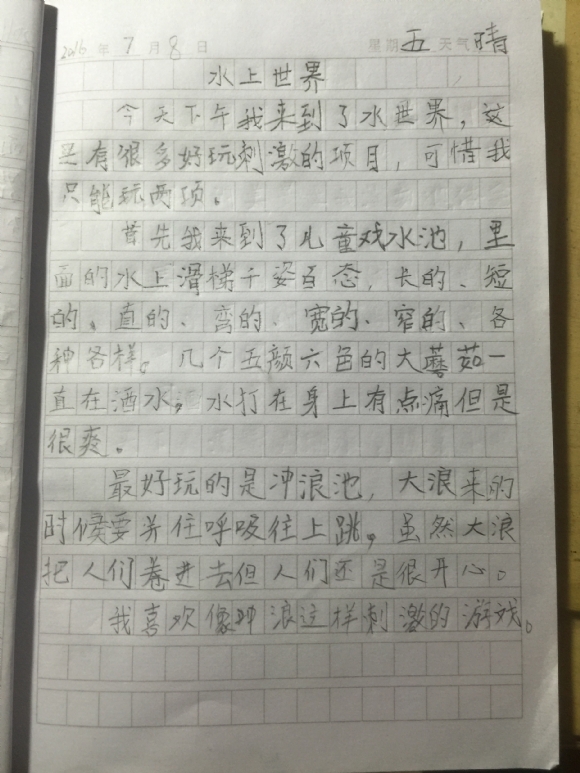 2016年7月8日 星期五 天气晴
水上世界
今天下午我来到了水世界，这
里有很多好玩刺激的项目，可惜我
只能玩两项。
首先我来到了儿童戏水池，里
面的水上滑梯千姿百态，长的、短
的、直的、弯的、宽的、窄的、各
种各样。几个五颜六色的大蘑茹一
直在洒水，水打在身上有点痛但是
很爽。
最好玩的是冲浪池，大浪来的
时候要并住呼吸往上跳，虽然大浪
把人们卷进去但人们还是很开心。
我喜欢像冲浪这样刺激的游戏。